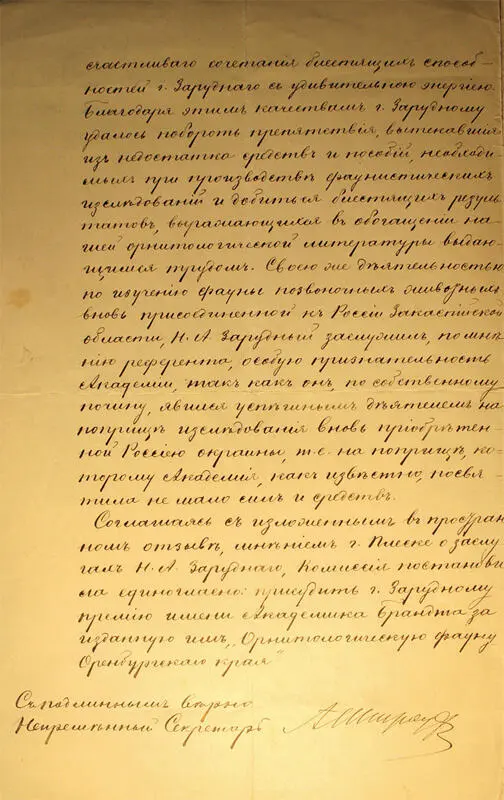 счастливаго сочетанія блестящихъ способ-
ностей г. Заруднаго съ удивительною энергіею.
Благодаря этимъ качествамъ г. Зарудному
удалось побороть препятствія, вытекавшія
изъ недостатка средствъ и пособій, необходи
мыхъ при производствѣ фаунистическихъ
изслѣдованій и добиться блестящихъ резуль
татовъ, выражающихся въ обогащеніи на-
шей орнитологической литературы выдаю-
щимся трудомъ. Своею же дѣятельностью
по изученію фауны позвоночныхъ животныхъ
вновь присоединенной къ Россіи Закаспійской
области, Н. А. Зарудный заслужилъ, по мнѣ
нію референта, особую признательность
Академіи, такъ какъ онъ, по собственному
почину, явился успѣшнымъ дѣятелемъ на
поприщѣ изслѣдованія вновь пріобрѣтен-
ной Россіею окраины, т.е. на поприщѣ, ко-
торому Академія, какъ извѣстно, посвя-
тила не мало силъ и средствъ.
Соглашаясь съ изложеннымъ въ простран
номъ отзывѣ, мнѣніемъ г. Плеске о заслу
гахъ Н. А. Заруднаго, Комиссія постанови
ла единогласно: присудить г. Зарудному
премію имени Академика Брандта за
изданную имъ „Орнитологическую фауну
Оренбургскаго края"
Съ подлиннымъ вѣрно
Непремѣнный Секретарь АШтраухъ